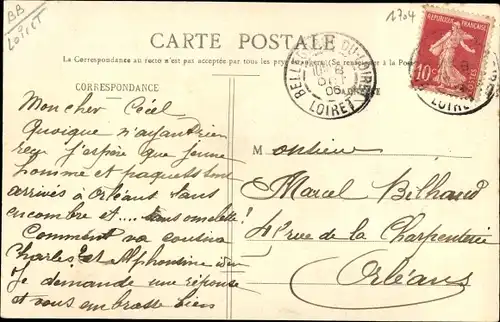 BB
LOIRET
1704
CARTE POSTALE
La Correspondance au recto n'est pas acceptée par tous les pays étrangers (Se renseigner à la Poste)
BELLEGARDE DU LOIRET
06
LOIRET
REPUBLIQUE FRANÇAISE
10c
POSTES
CORRESPONDANCE
Mon cher Cécel
Quoique n'ayant rien
reçu j'espère que jeune
homme et paquets sont
arrivés à Orléans sans
encombre et.... sans omelette!
Comment va cousin
Charles et Alphonsine
Je demande une réponse
et vous embrasse bien
Monsieur
Marcel
rue de la Charpenterie
Orléans